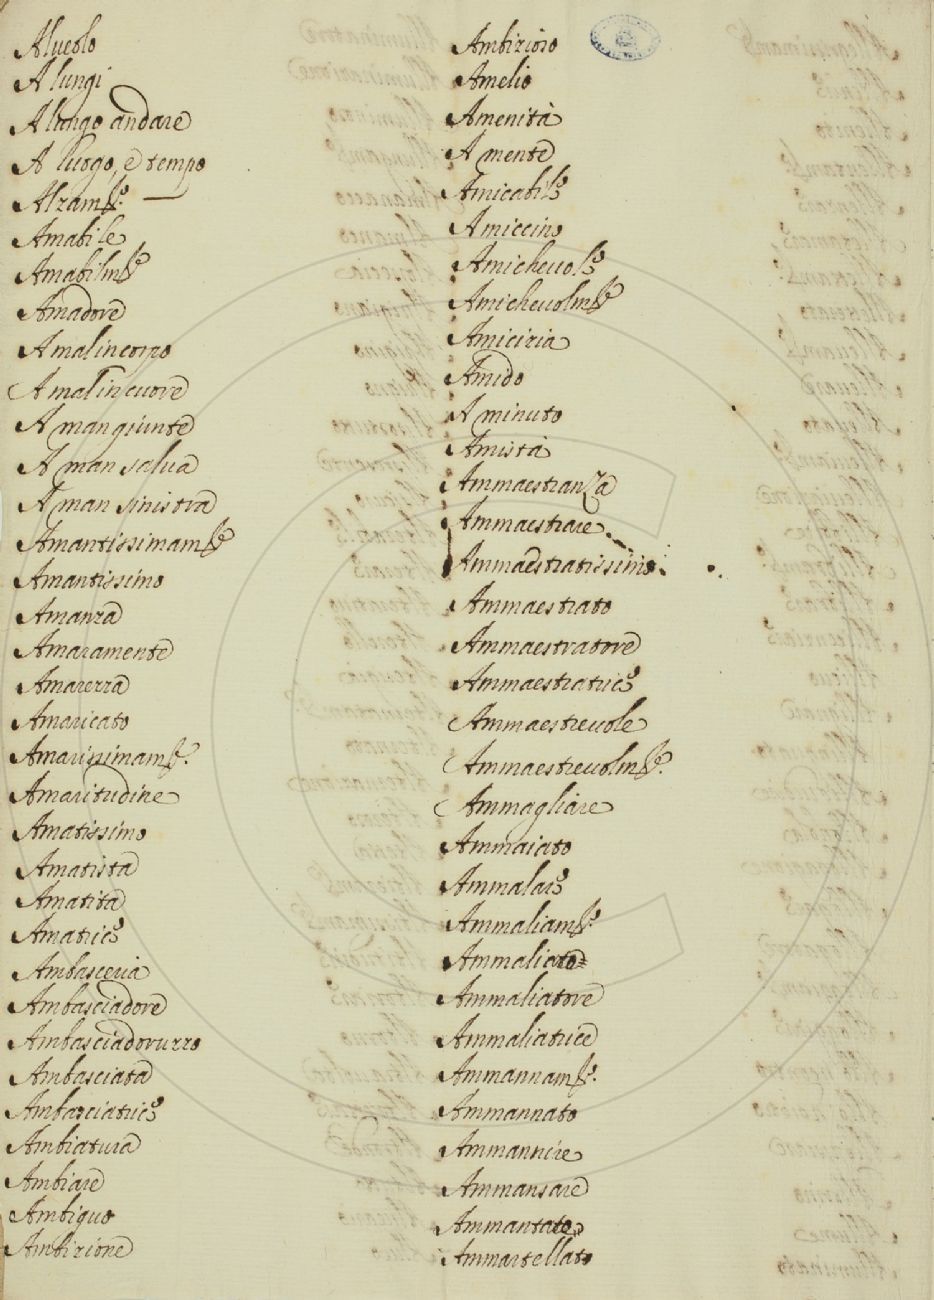 Alueolo
A lungi
A lungo andare
A luogo, e tempo
Alzam.to
Amabile
Amabilm.te
Amadore
A malincorpo
A malincuore
A man giunte
A man salua
A man sinistra
Amantissimam.te
Amantissimo
Amanza
Amaramente
Amarezza
Amaricato
Amarissimam.te
Amaritudine
Amatissimo
Amatista
Amatita
Amatrice
Ambasceria
Ambasciadore
Ambasciadoruzzo
Ambasciata
Ambasciatrice
Ambiatura
Ambiare
Ambiguo
Ambizione
Ambizioso
Amelio
Amenità
A mente
Amicabile
Amiccino
Amicheuole
Amicheuolm.te
Amicizia
Amido
A minuto
Amistà
Ammaestranza
Ammaestrare
Ammaestratissimo
Ammaestrato
Ammaestratore
Ammaestratrice
Ammaestreuole
Ammaestreuolm.te
Ammagliare
Ammaiato
Ammalare
Ammaliam.to
Ammaliato
Ammaliatore
Ammaliatrice
Ammannam.to
Ammannato
Ammannire
Ammansare
Ammantato
Ammartellato